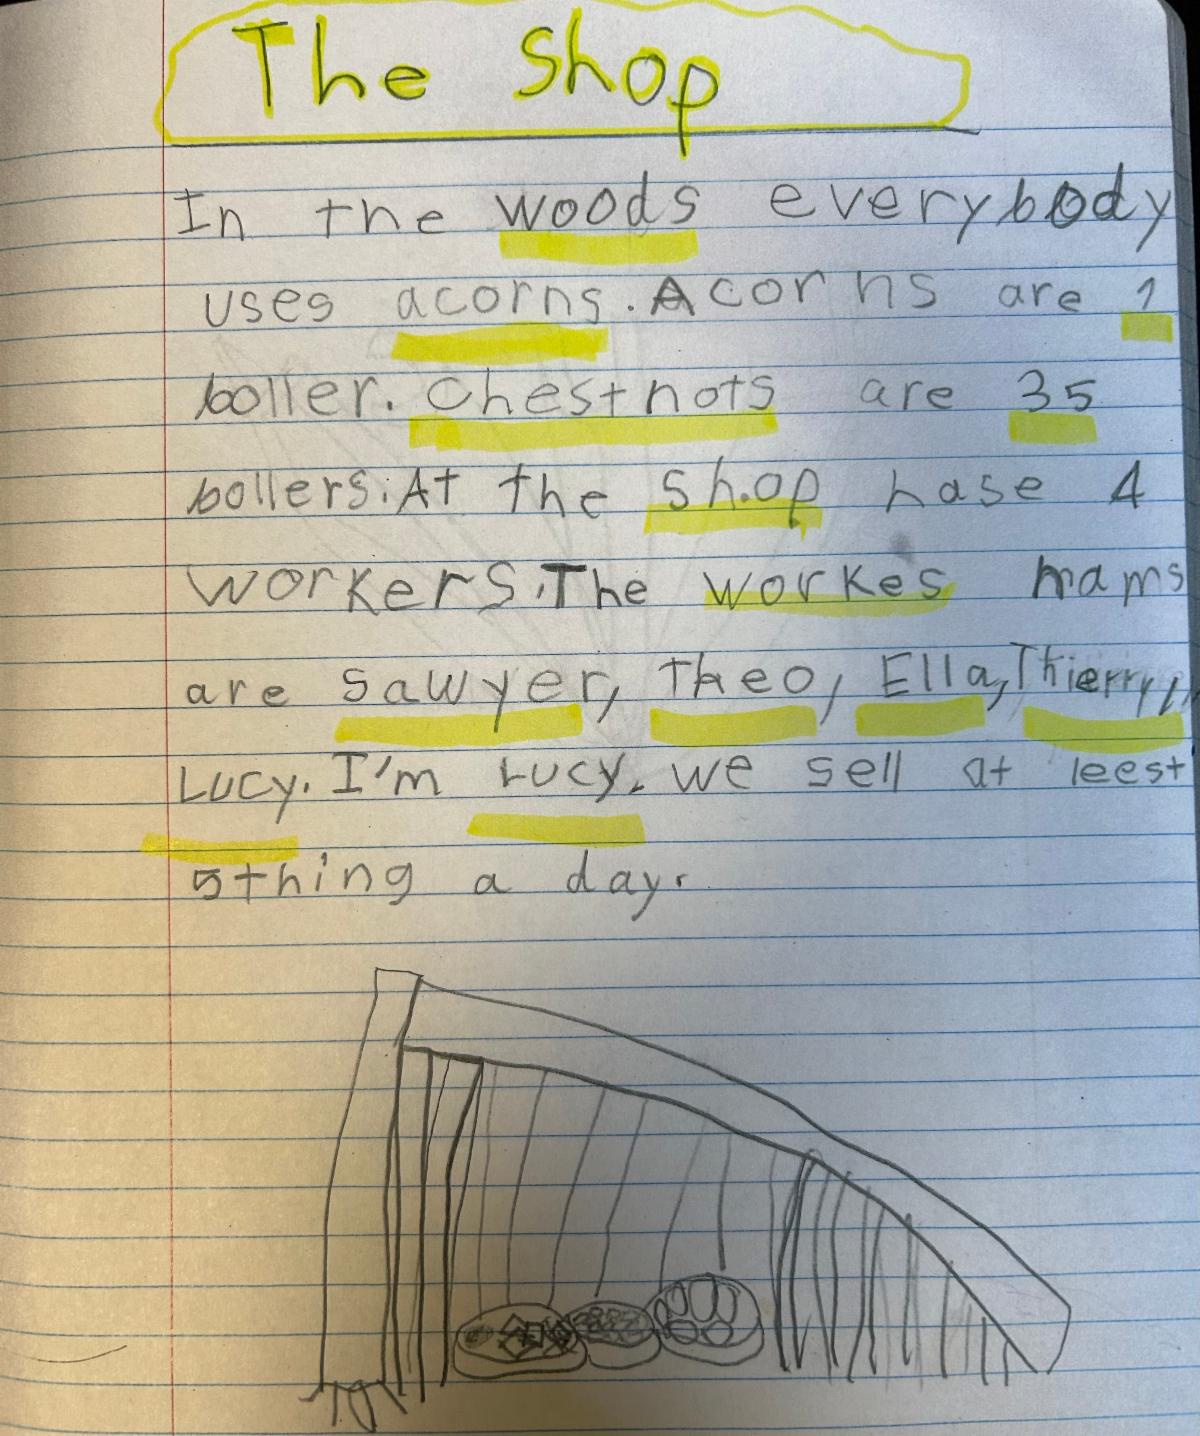 The Shop
In the woods everybody
uses acorns. Acorns are 1
boller. Chestnots are 35
bollers. At the shop hase 4
workers. The workes nams
are Sawyer, Theo, Ella, Thierry,
Lucy. I'm Lucy. we sell at leest
5 thing a day.